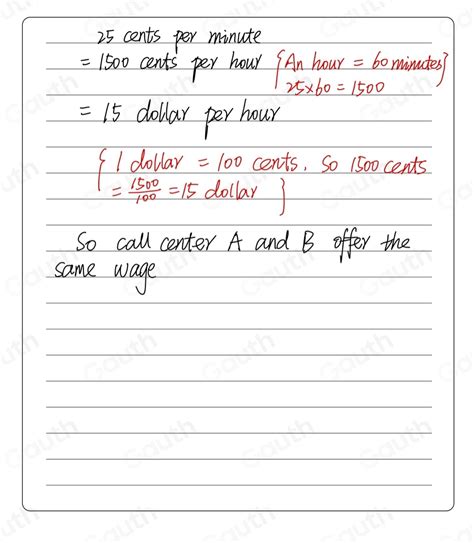 25 cents per minute
= 1500 cents per hour {An hour = 60 minutes}
25×60 = 1500
= 15 dollar per hour
{ 1 dollar = 100 cents. So 1500 cents
= 1500/100 = 15 dollar }
So call center A and B offer the
same wage